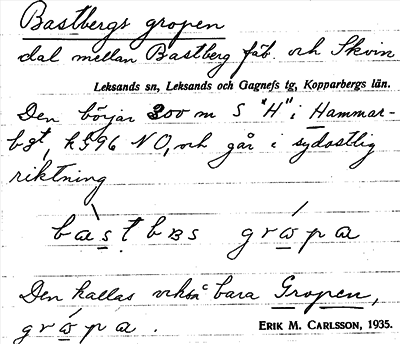 Bastbergs gropen
dal mellan Bastberg fäb. och Skvin
Leksands sn, Leksands och Gagnefs tg, Kopparbergs län.
Den börjar 300 m S "H" i Hammar-
bgt, k 596 NO, och går i sydostlig
riktning
Den kallas också bara Gropen,
ERIK M. CARLSSON, 1935.